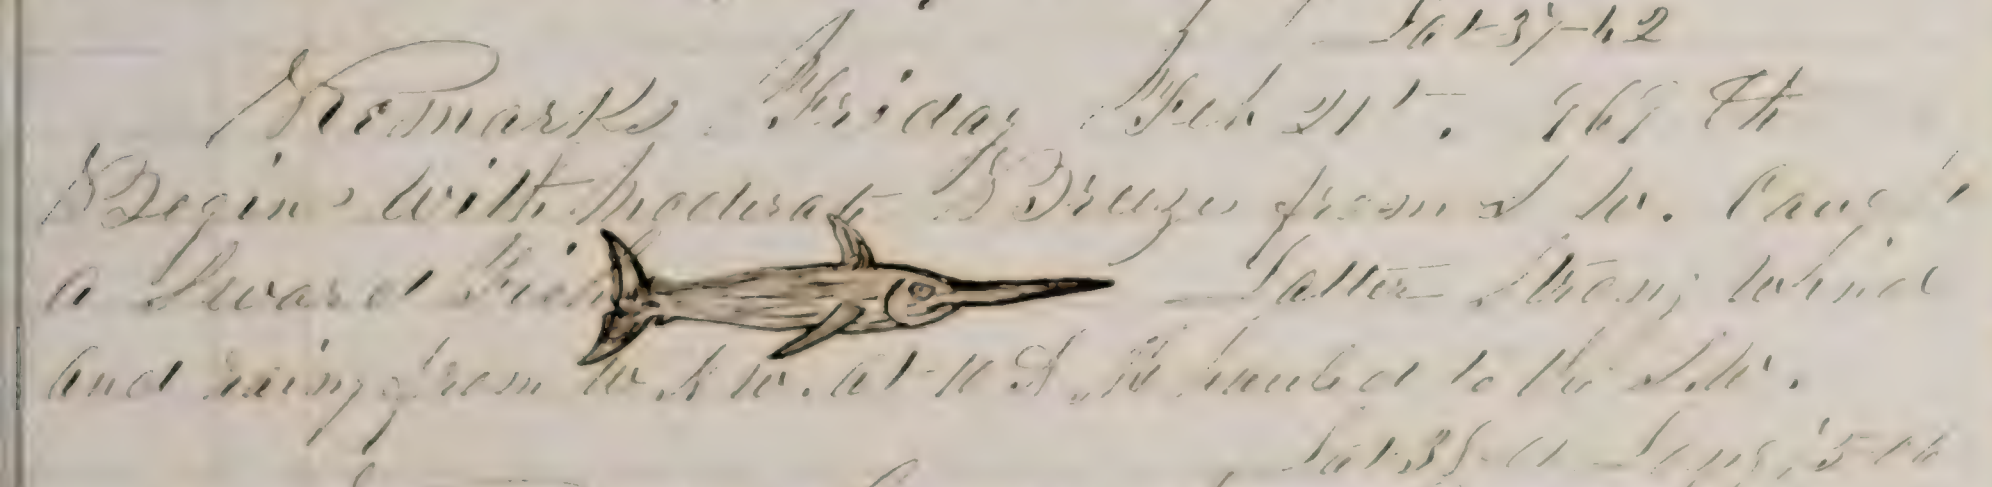 Lat-37-42
Remarks Friday Feb 21st. 969 th
Begins with moderate Breeze from S W. Caught
a Sward Fish Latter Strong wind
and from W S W. at 11 P M hauled to the S.W.
Lat 38- Long